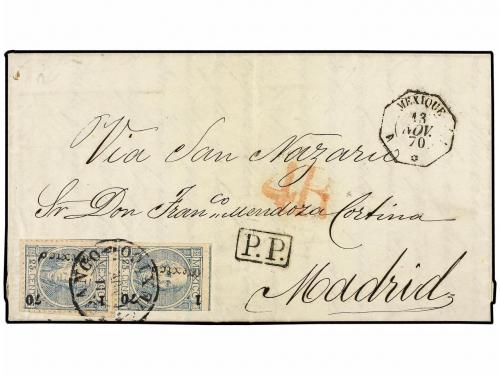 MEXIQUE
13
NOV.
70
Via San Nazario
Sr. Don Fran.co Mendoza Cortina
P.P.
Madrid
Mexico
1 70
Mexico
1 70